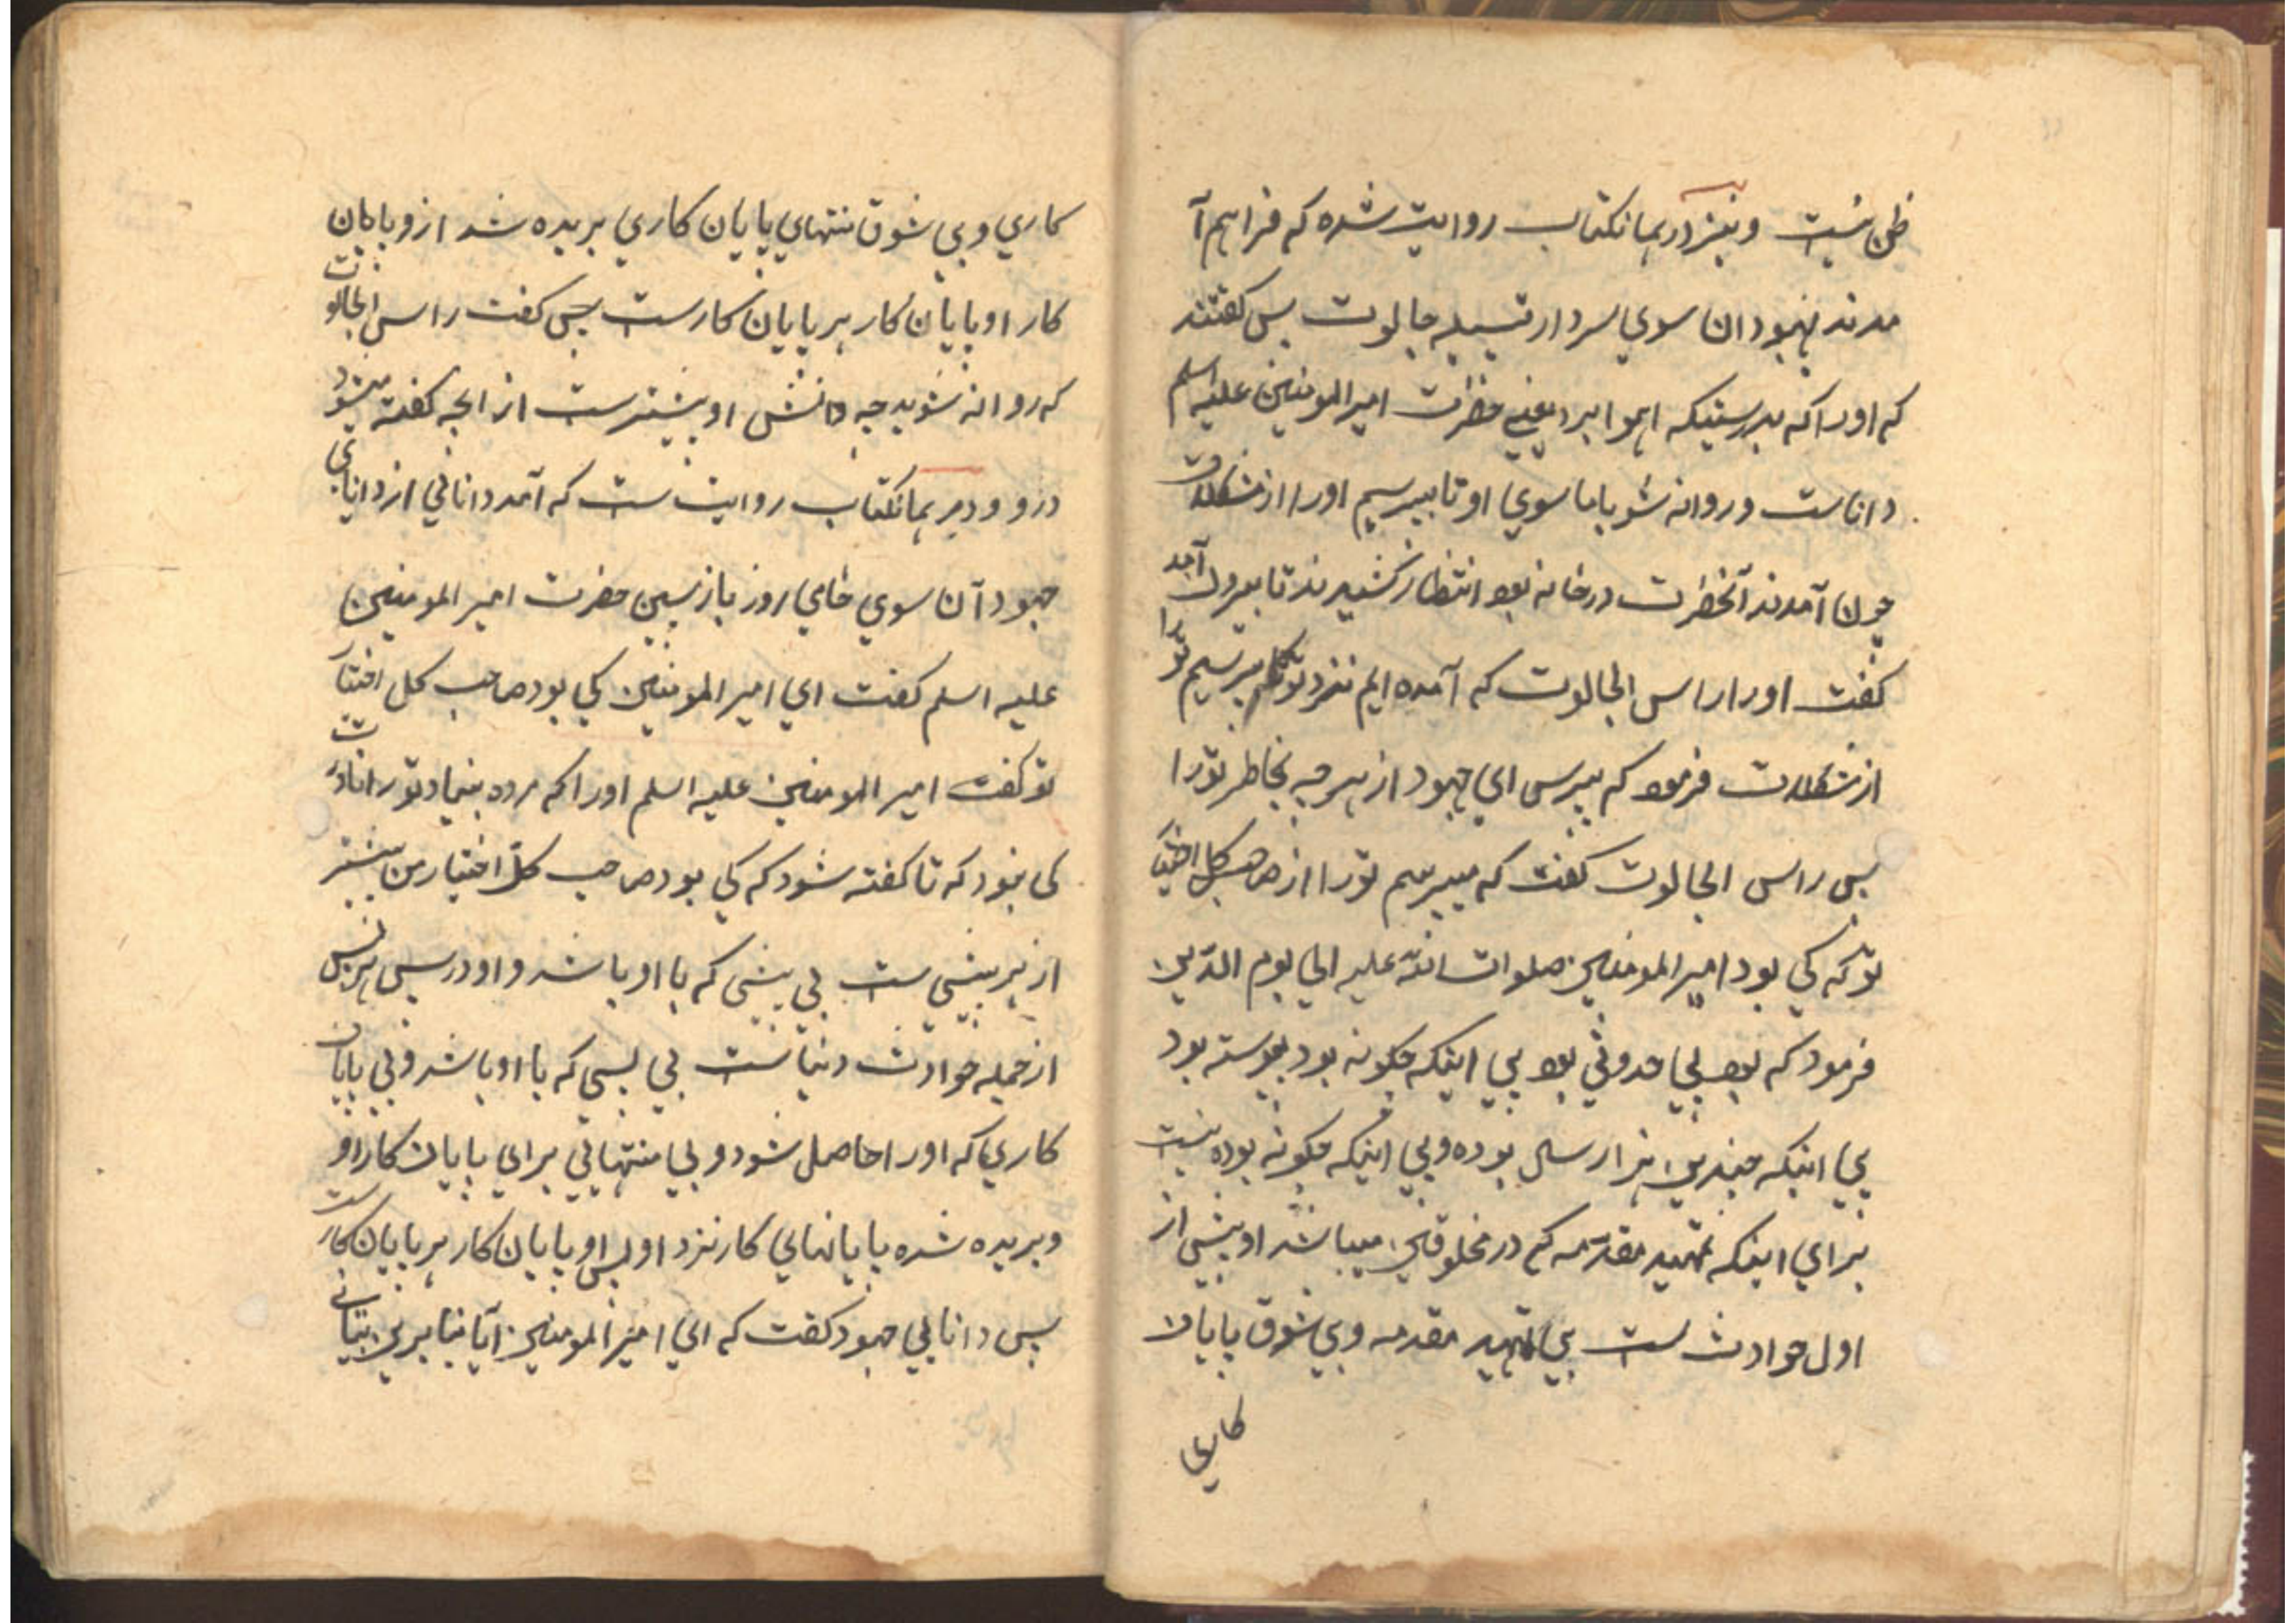 ظن نیست و نیز در همانکتاب روایت شده که فراهم آ
مدند یهودان سوی سردار قبیله جالوت پس کفتند
که اورا که بدرستیکه این یعنی حضرت امیر المومنین علیه اسلم
داناست و روانه شو باما سوی او تا بپرسیم اورا از مشکلات
چون آمدند آنحضرت در خانه بود انتظار کشیدند تا بیرون آمد
کفت اورا راس الجالوت که آمده ایم نزد تو که بپرسیم تو را
از مشکلات فرمود که بپرس ای جهود از هر چه بخاطر تورا
پس راس الجالوت کفت که میپرسم تورا از صاحب کل اختیار
تو که کی بود امیر المومنین صلوات الله علیه الی یوم الدین
فرمود که بود بی حدوثی بود بی اینکه چکونه بود پیوسته بود
بی اینکه چندین هزار سال بوده و بی اینکه چکونه بوده نیست
برای اینکه تمهید مقدمه که در مخلوقین میباشد او پیش از
اول حوادث ست بی تمهید مقدمه و بی شوق پایان
کاری
کاری و بی شوق منتهای پایان کاری بریده شد ازو پایان
کار او پایان کار هر پایان کارست پس کفت راس الجالوت
که روانه شوید چه دانش او بیشترست از انچه کفته میشود
درو و در همانکتاب روایت ست که آمد دانائی از دانایان
جهودان سوی حضرت امیر المومنین
علیه اسلم کفت ای امیر المومنین کی بود صاحب کل اختیار
تو کفت امیر المومنین علیه اسلم اورا که مرده بیناد تورا مادرت
کی نبود که تا کفته شود که کی بود صاحب کل اختیار من پیشتر
از هر پیشی ست بی پیشی که با او باشد و او در پس هر پس
از جمله حوادث دنیاست بی پسی که با او باشد و بی پایان
کاری که اورا حاصل شود و بی منتهائی برای پایان کار او
و بریده شده پایانهای کار نزد او پس او پایان کار هر پایان کارست
پس دانایی جهود کفت که ای امیر المومنین آیا بنابرین